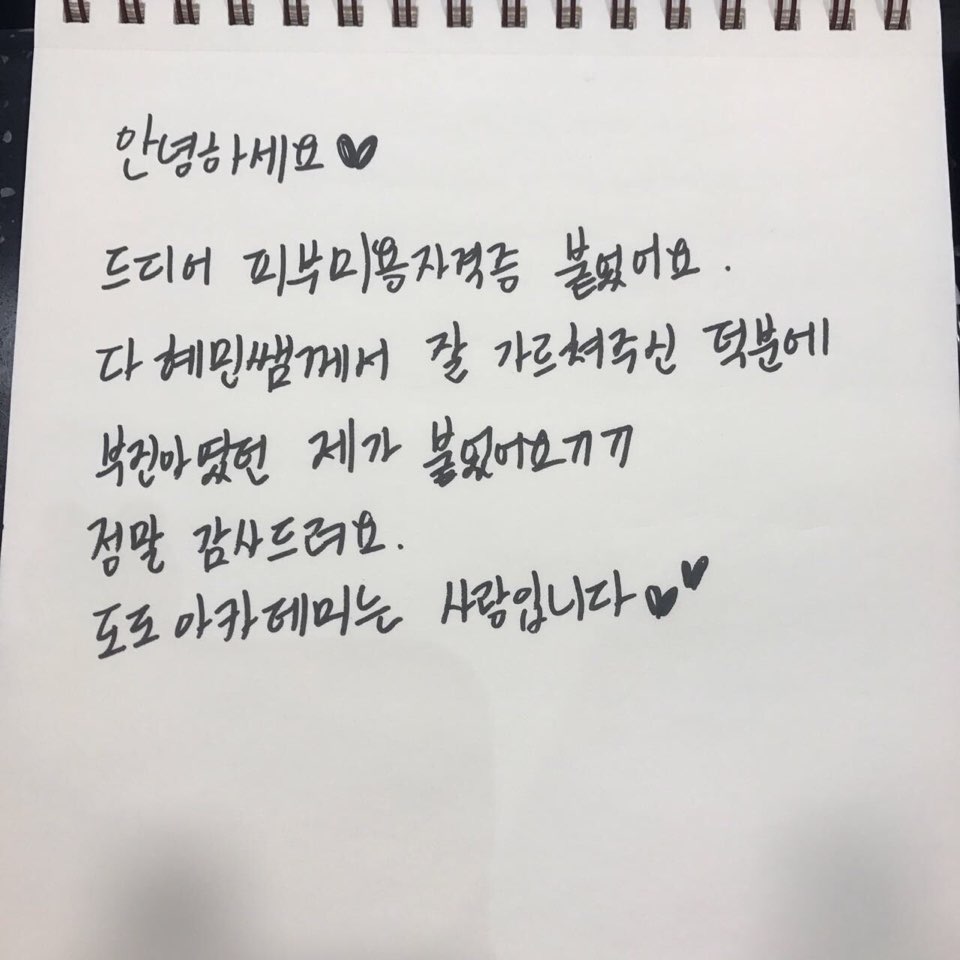 안녕하세요♥
드디어 피부미용자격증 붙었어요.
다 혜민쌤께서 잘 가르쳐주신 덕분에
부진아였던 제가 붙었어요ㄲㄲ
정말 감사드려요.
도도아카데미는 사랑입니다♥♥